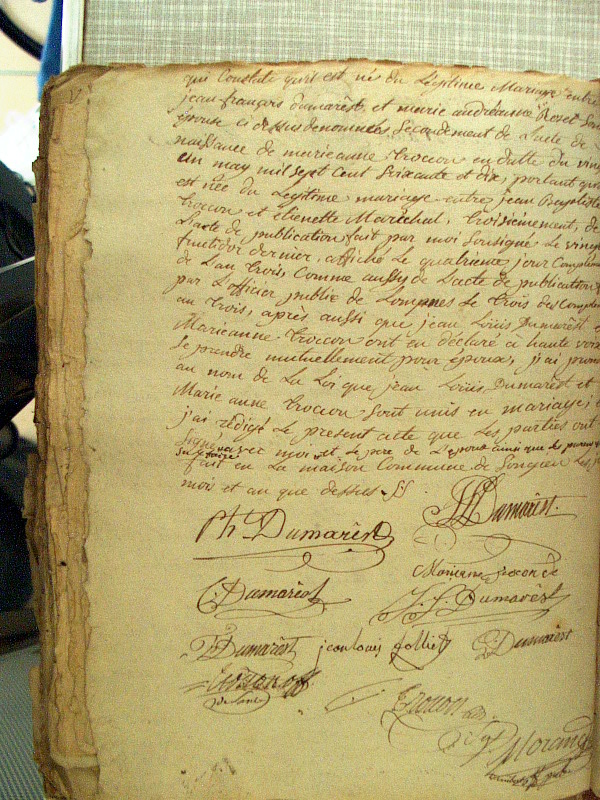 qui Constate qu'il est né du Légitime Mariage entre
jean françois dumarêst et marie andréanne Roset Son
épouse ci dessus denommés Secondement de L'acte de
naissance de marieanne trocon en datte du vingt
un may mil sept Cent Soixante et dix, portant qu'elle
est née du Legitime mariage entre jean Baptiste
trocon et étienette Maréchal, troisiemement, de
L'acte de publication fait par moi Soussigné Le vingt
fructidor dernier, affiché Le quatrieme jour Complem
de L'an trois, Comme aussy de L'acte de publication
par L'officier public de Lompnes Le trois des Complem
an trois, après aussi que jean Loüis Dumarêst et
Marieanne trocon ont eu déclaré a haute voix
se prendre mutuellement pour époux, j'ai prononcé
au nom de La Loi que jean Loüis Dumarêst et
Marie anne trocon Sont unis en mariage, et
j'ai rédigé Le present acte que Les parties ont
Signé avec moi et Le pere de L'epoux ainsi que les parens
fait en La maison Commune de Longieu Les
mois et an que dessus
Dumarêst
Ph. Dumarêst
Marianne trocon
C. Dumarest
J. f. Dumarêst
Dumarêst jean louis folliet Dumarest
Trocon
Morand